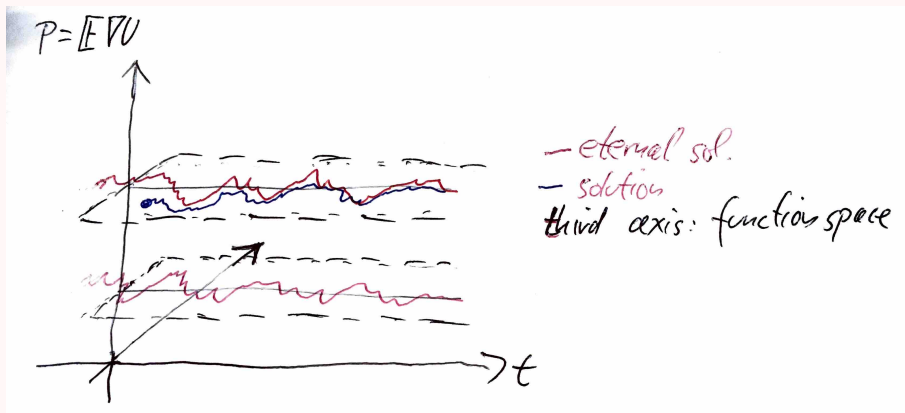 P = 𝔼∇U
— eternal sol.
— solution
third axis: function space
t